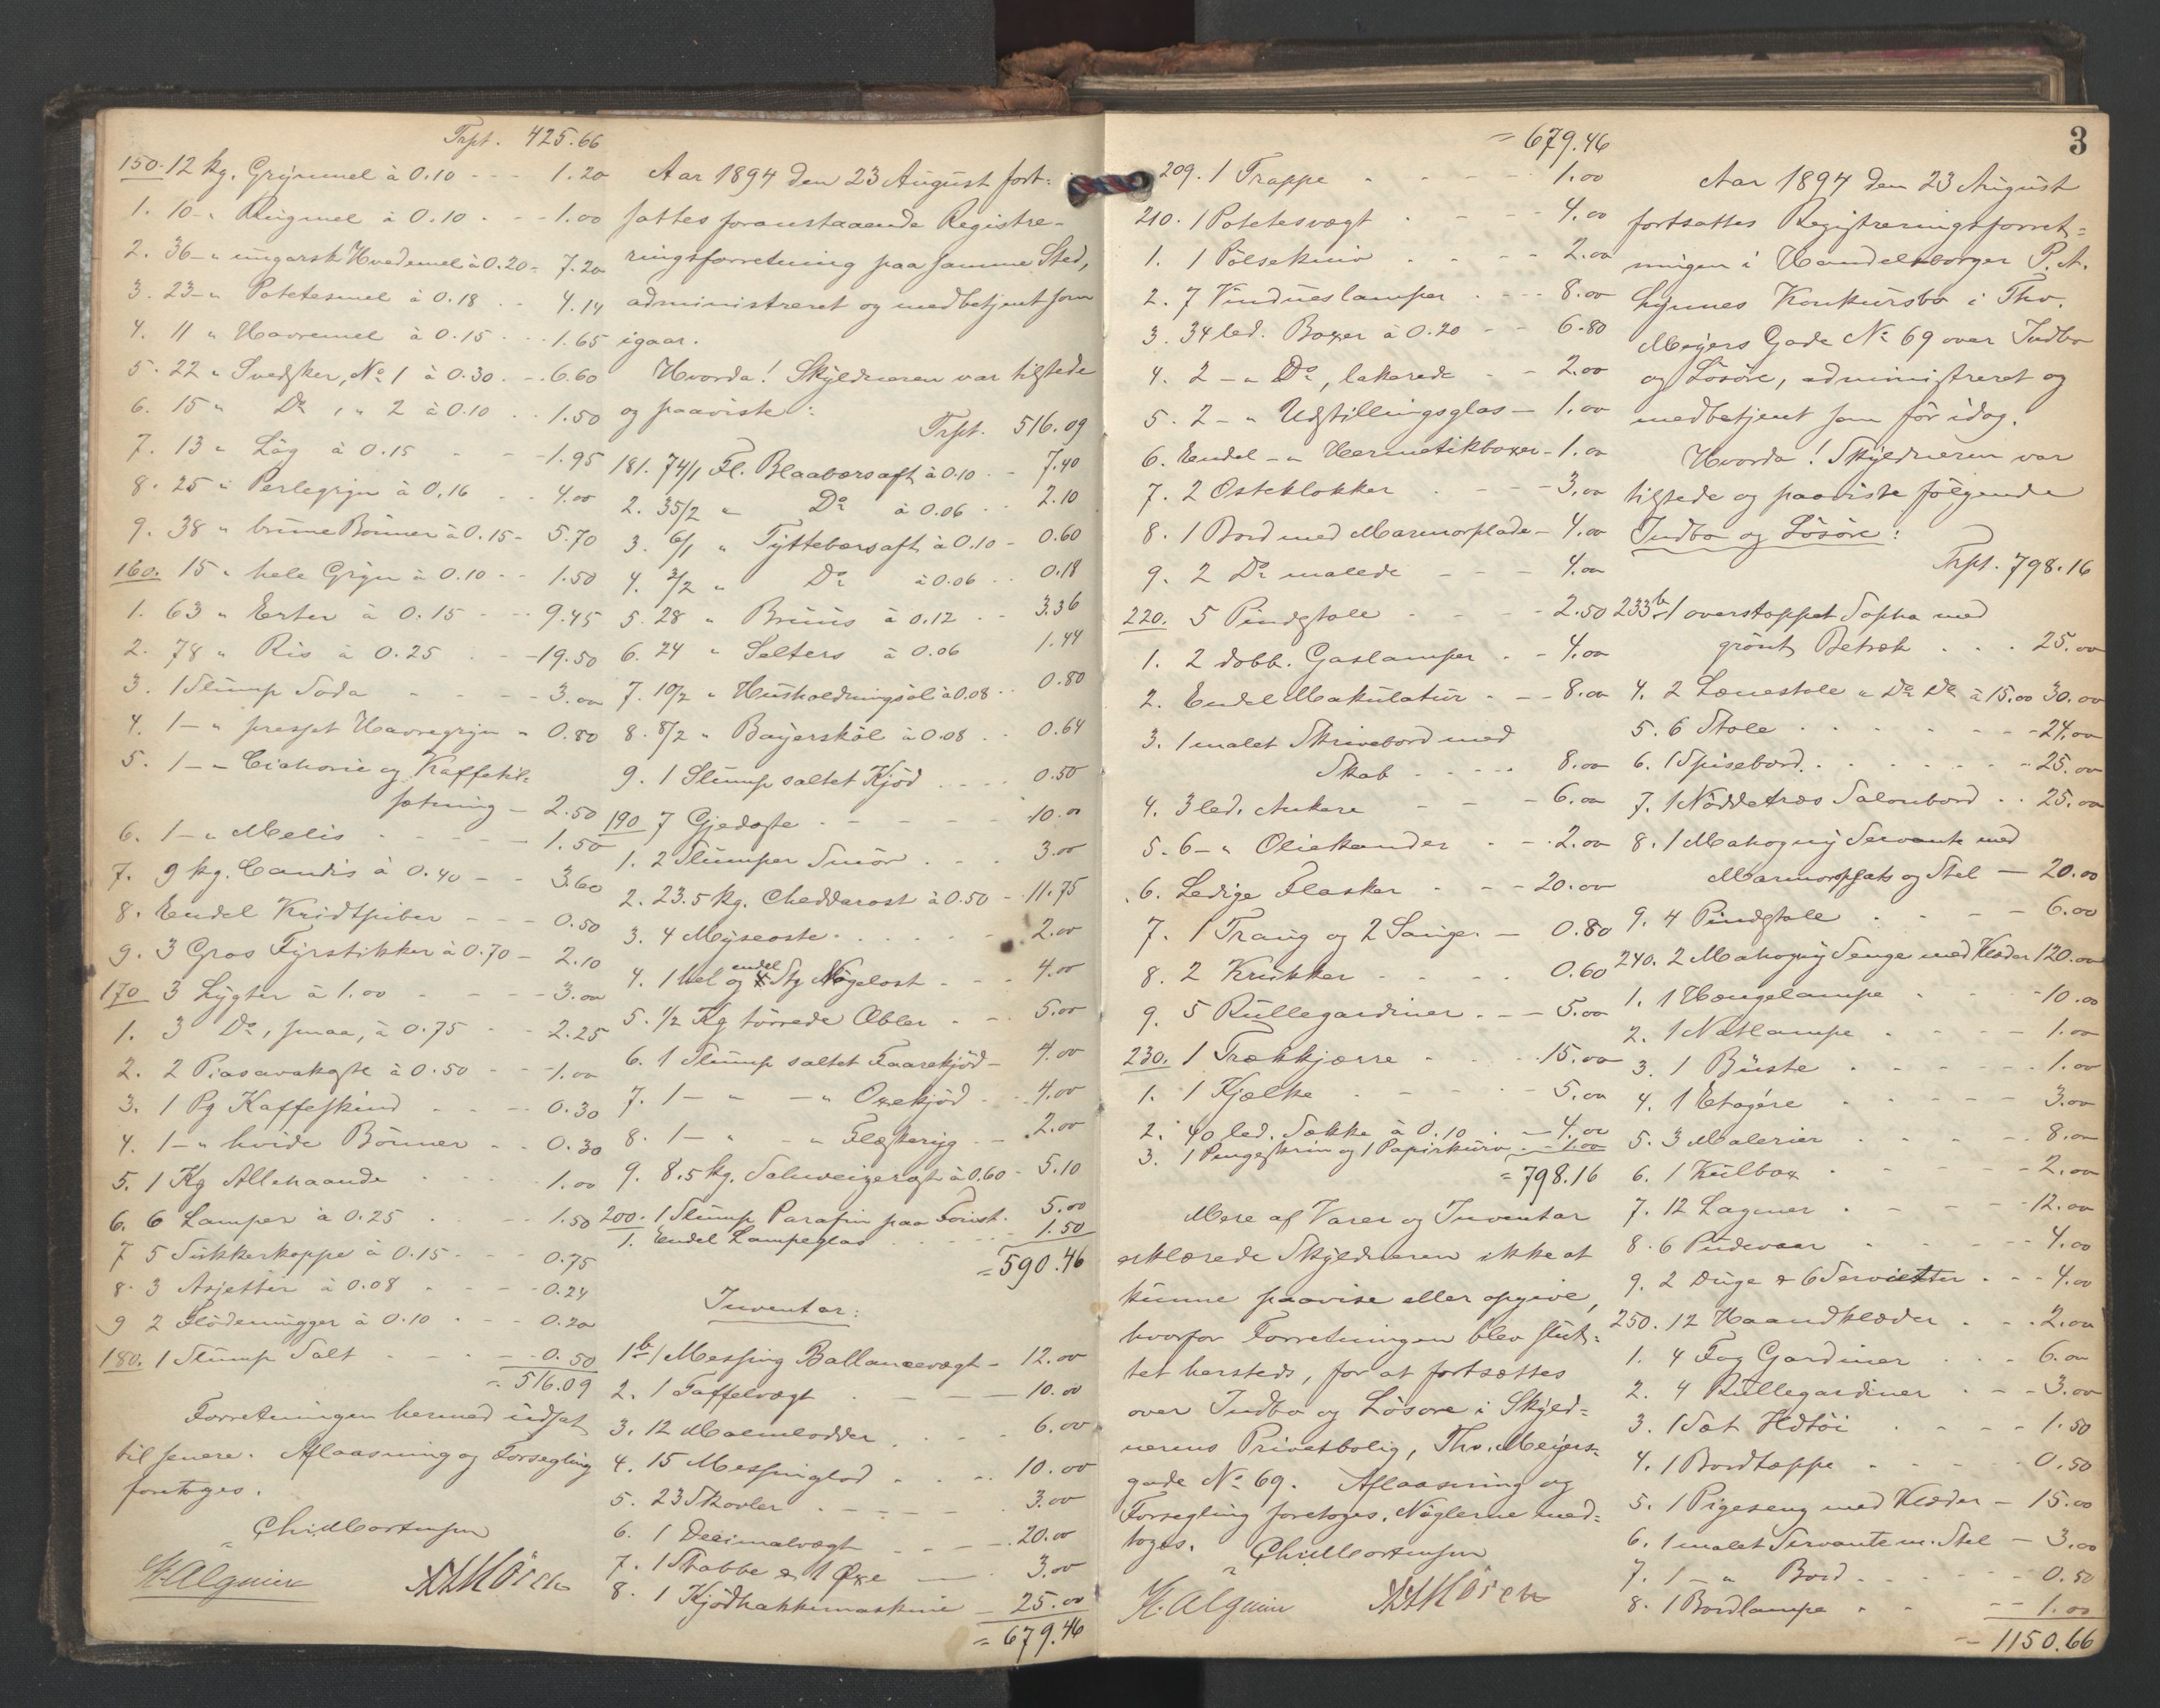 Trpt. 425.66
150. 12 kg. Grynmel à 0.10 - - - 1.20
1. 10 - " Rugmel à 0.10 . - - 1.00
2. 36 - " ungarsk Hvedemel à 0.20 - 7.20
3. 23 - " Potetesmel à 0.18 . . 4.14
4. 11 " Havremel à 0.15 . . . 1.65
5. 22 " Svedsker, No 1 à 0.30 . - . 6.60
6. 15 " Do , " 2 à 0.10 . . 1.50
7. 13 " Løg à 0.15 - - - 1.95
8. 25 " Perlegryn à 0.16 . . . 4.00
9. 38 " brune Bönner à 0.15 - 5.70
160. 15 " hele Gryn à 0.10 - - 1.50
1. 63 " Erter à 0.15 - - - 9.45
2. 78 " Ris à 0.25 . - - 19.50
3. 1 Slump Soda - - - - 3.00
4. 1 - " presset Havregryn " 0.80
5. 1 - " Cichorie og Kaffetil=
sætning - 2.50
6. 1 - " Melis - - - - 1.50
7. 9 kg. Candis à 0.40 - - 3.60
8. Endel Kridtpiber - - - 0.50
9. 3 Gros Fyrstikker à 0.70 - 2.10
170 3 Lygter à 1.00 - - - 3.00
1. 3 Do, smaa, à 0.75 - - 2.25
2. 2 Piasavakoste à 0.50 - - 1.00
3. 1 Pg Kaffeskind - - - 0.30
4. 1 - " hvide Bönner - - 0.30
5. 1 Kg Allehaande - - - 1.00
6. 6 Lamper à 0.25 . - - 1.50
7 5 Sukkerkoppe à 0.15 - - 0.75
8. 3 Asjetter à 0.08 - - - 0.24
9 2 Flödemugger à 0.10 - - - 0.20
180. 1 Slump Salt - - - - 0.50
= 516.09
Forretningen hermed udsat
til senere. Aflaasning og Forsegling
foretoges.
Chr. Mortensen
K. Alguier

Aar 1894 den 23 August fort=
sattes foranstaaende Registre-
ringsforretning paa samme Sted,
administreret og medbetjent som
igaar.
Hvorda! Skyldneren var tilstede
og paaviste:
Trpt. 516.09
181. 74/1 Fl. Blaabærsaft à 0.10 - - 7.40
2. 35/2 " Do à 0.06 . . 2.10
3. 6/1 " Tyttebærsaft à 0.10 - 0.60
4. 3/2 " Do à 0.06 . . 0.18
5. 28 " Brus à 0.12 . . 3.36
6. 24 " Selters à 0.06 1.44
7. 10/2 " Husholdningsöl à 0.08 . . 0.80
8. 8/2 " Bayersköl à 0.08 . . 0.64
9. 1 Slump saltet Kjöd . . . . 0.50
190 7 Gjedoste - - - - - 10.00
1. 2 Slumper Smör . - . 3.00
2. 23.5 kg. Cheddarost à 0.50 - 11.75
3. 4 Myseoste . . . . . - 2.00
4. 1 hel og endel Stg Nögelost - - - 4.00
5. 1/2 Kg törrede Æbler . - - 5.00
6. 1 Slump saltet Faarekjöd - 4.00
7. 1 - " - " Oxekjöd . . 4.00
8. 1 - " - " Flæskeryg - - 2.00
9. 8.5 kg. Schweizerost à 0.60 - 5.10
200. 1 Slump Parafin paa Foust. 5.00
1. Endel Lampeglas . . . . . . 1.50
= 590.46
Inventar:
1b 1 Messing Ballancevægt - 12.00
2. 1 Taffelvægt . - - - - 10.00
3. 12 Malmlodder . . . - 6.00
4. 15 Messinglod . . . . 10.00
5. 23 Skovler . - - - - 3.00
6. 1 Decimalvægt - - - . 20.00
7. 1 Stabbe & 1 Öxe - - . 3.00
8. 1 Kjödhakkemaskine - 25.00
= 679.46

= 679.46
209. 1 Trappe - - - - - 1.00
210. 1 Potetesvægt . - - - 4.00
1. 1 Pölsekniv . . . - - 2.00
2. 7 Vindueslamper . - - - 8.00
3. 34 led. Boxer à 0.20 - - 6.80
4. 2 - " Do, lakerede - - 2.00
5. 2 - " Udstillingsglas - 1.00
6. Endel - " Hermetikboxer - 1.00
7. 2 Osteklokker . - - - 3.00
8. 1 Bord med Marmorplade - 4.00
9. 2 Do malede - - - 4.00
220. 5 Pindstole . - - - 2.50
1. 2 dobb. Gaslamper . - 4.00
2. Endel Makulatur . - - 8.00
3. 1 malet Skrivebord med
Skab - - - - 8.00
4. 3 led. Ankere - - - 6.00
5. 6 - " Oliekander . - - 2.00
6. Ledige Flasker - - - 20.00
7. 1 Traug og 2 Sauger - 0.80
8. 2 Krukker - - - - 0.60
9. 5 Rullegardiner . - - 5.00
230. 1 Trækkjærre - - - 15.00
1. 1 Kjælke - - - - 5.00
2. 40 led. Sække à 0.10 . - 4.00
3. 1 Pengeskrin og 1 Papirkurv . - 1.00
= 798.16
Mere af Varer og Inventar
erklærede Skyldneren ikke at
kunne paavise eller opgive,
hvorfor Forretningen blev slut=
tet hersteds, for at fortsættes
over Indbo og Lösöre i Skyld=
nerens Privatbolig, Thv. Meyers=
gade No 69. Aflaasning og
Forsegling foretoges. Nöglerne med=
toges. Chr. Mortensen
K. Alguier

3
Aar 1894 den 23 August
fortsattes Registreringsforret=
ningen i Handelsborger P. A.
Lynnes Konkursbo i Thv.
Meyers Gade No 69 over Indbo
og Lösöre, administreret og
medbetjent som för idag.
Hvorda! Skyldneren var
tilstede og paaviste fölgende
Indbo og Lösöre:
Trpt. 798.16
233b 1 overstoppet Sopha med
grönt Betræk . . . 25.00
4. 2 Lænestole " Do Do à 15.00 30.00
5. 6 Stole . . . . . . - - 24.00
6. 1 Spisebord . . . . . . - - 25.00
7. 1 Nöddetræs Salonbord . . 25.00
8. 1 Mahogny Servante med
Marmorplate og Stel - 20.00
9. 4 Pindstole . - - - - 6.00
240. 2 Mahogny Senge med Klæder 120.00
1. 1 Hængelampe . . - - 10.00
2. 1 Natlampe . - - - - 1.00
3. 1 Büste . . - - - - 1.00
4. 1 Etagére . - - - - 3.00
5. 3 Malerier . . - - - 8.00
6. 1 Kulbox . . - - - 2.00
7. 12 Lagner . - - - - 12.00
8. 6 Pudevaar . . - - - 4.00
9. 2 Duge & 6 Servietter . - - 4.00
250. 12 Haandklæder . . . 2.00
1. 4 Fag Gardiner . . . 6.00
2. 4 Rullegardiner . - - 3.00
3. 1 Sæt Ildtöi . . . . 1.50
4. 1 Bordtæppe . - - - - 0.50
5. 1 Pigeseng med Klæder - 15.00
6. 1 malet Servante m. Stel - 3.00
7. 1 - " Bord . - - - - 0.50
8. 1 Bordlampe . . - - 1.00
= 1150.66